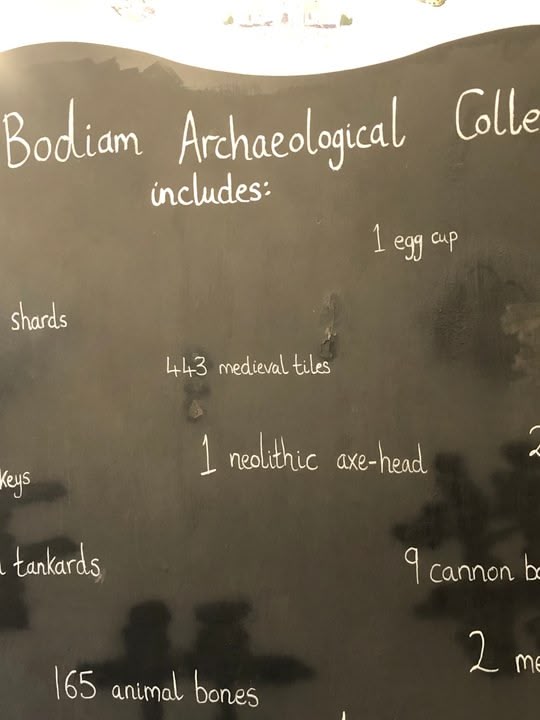 Bodiam Archaeological Colle
includes:
1 egg cup
shards
443 medieval tiles
2
1 neolithic axe-head
keys
tankards
9 cannon b
2 me
165 animal bones